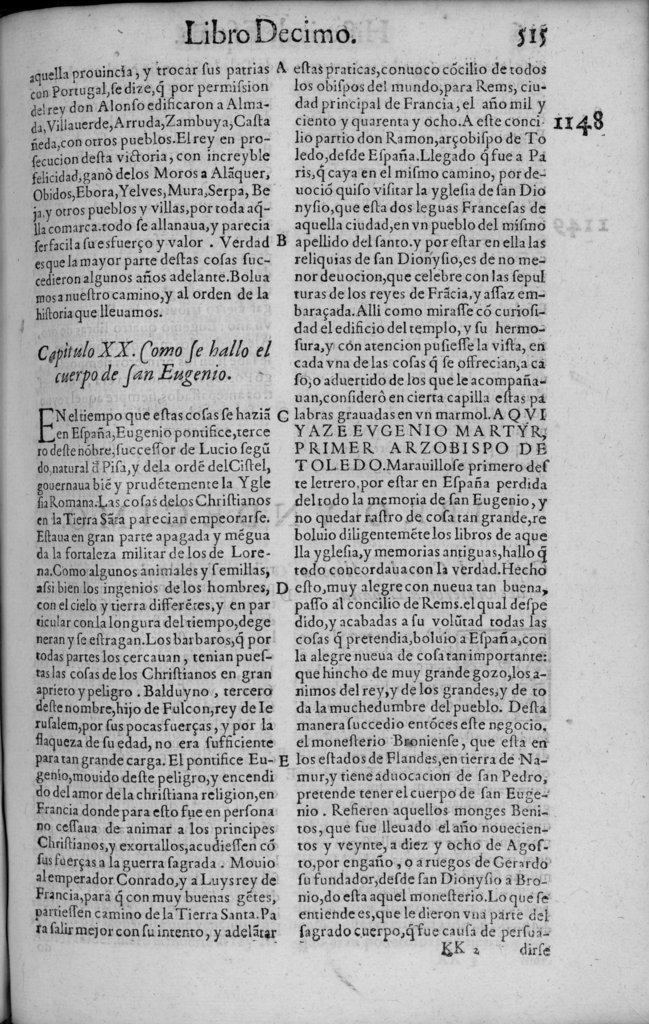 Libro Decimo.
515
aquella prouincia, y trocar sus patrias
con Portugal, se dize, q̃ por permission
del rey don Alonso edificaron a Alma-
da, Villauerde, Arruda, Zambuya, Casta
ñeda, con otros pueblos. El rey en pro-
secucion desta victoria, con increyble
felicidad, ganò delos Moros a Alãquer,
Obidos, Ebora, Yelves, Mura, Serpa, Be
ja, y otros pueblos y villas, por toda aq̃-
lla comarca. todo se allanaua, y parecia
ser facil a su esfuerço y valor. Verdad
es que la mayor parte destas cosas suc-
cedieron algunos años adelante. Bolua
mos a nuestro camino, y al orden de la
historia que lleuamos.
Capitulo XX. Como se hallo el
cuerpo de san Eugenio.
EN el tiempo que estas cosas se haziã
en España, Eugenio pontifice, terce
ro deste nõbre, successor de Lucio segũ
do, natural đ Pisa, y dela ordẽ del Cistel,
gouernaua biẽ y prudẽtemente la Ygle
sia Romana. Las cosas delos Christianos
en la Tierra Sãta parecian empeorarse.
Estaua en gran parte apagada y mẽgua
da la fortaleza militar de los de Lore-
na. Como algunos animales y semillas,
assi bien los ingenios de los hombres,
con el cielo y tierra differẽtes, y en par
ticular con la longura del tiempo, dege
neran y se estragan. Los barbaros, q̃ por
todas partes los cercauan, tenian pues-
tas las cosas de los Christianos en gran
aprieto y peligro. Balduyno, tercero
deste nombre, hijo de Fulcon, rey de Ie
rusalem, por sus pocas fuerças, y por la
flaqueza de su edad, no era sufficiente
para tan grande carga. El pontifice Eu-
genio, mouido deste peligro, y encendi
do del amor de la christiana religion, en
Francia donde para esto fue en persona
no cessaua de animar a los principes
Christianos, y exortallos, acudiessen cõ
sus fuerças a la guerra sagrada. Mouio
al emperador Conrado, y a Luys rey de
Francia, para q̃ con muy buenas gẽtes,
partiessen camino de la Tierra Santa. Pa
ra salir mejor con su intento, y adelãtar
A
B
C
D
E
estas praticas, conuoco cõcilio de todos
los obispos del mundo, para Rems, ciu-
dad principal de Francia, el año mil y
ciento y quarenta y ocho. A este conci
lio partio don Ramon, arçobispo de To
ledo, desde España. Llegado q̃ fue a Pa
ris, q̃ caya en el mismo camino, por de-
uociõ quiso visitar la yglesia de san Dio
nysio, que esta dos leguas Francesas de
aquella ciudad, en vn pueblo del mismo
apellido del santo. y por estar en ella las
reliquias de san Dionysio, es de no me-
nor deuocion, que celebre con las sepul
turas de los reyes de Frãcia, y assaz em-
baraçada. Alli como mirasse cõ curiosi-
dad el edificio del templo, y su hermo-
sura, y cón atencion pusiesse la vista, en
cada vna de las cosas q̃ se offrecian, a ca
so, o aduertido de los que le acompaña-
uan, considerò en cierta capilla estas pa
labras grauadas en vn marmol. AQVI
YAZE EVGENIO MARTYR,
PRIMER ARZOBISPO DE
TOLEDO. Marauillose primero des
te letrero, por estar en España perdida
del todo la memoria de san Eugenio, y
no quedar rastro de cosa tan grande, re
boluio diligentemẽte los libros de aque
lla yglesia, y memorias antiguas, hallo q̃
todo concordaua con la verdad. Hecho
esto, muy alegre con nueua tan buena,
passo al concilio de Rems. el qual despe
dido, y acabadas a su volũtad todas las
cosas q̃ pretendia, boluio a España, con
la alegre nueua de cosa tan importante:
que hincho de muy grande gozo, los á-
nimos del rey, y de los grandes, y de to
da la muchedumbre del pueblo. Desta
manera succedio entõces este negocio.
el monesterio Broniense, que esta en
los estados de Flandes, en tierra de Na-
mur, y tiene aduocacion de san Pedro,
pretende tener el cuerpo de san Euge-
nio. Refieren aquellos monges Beni-
tos, que fue lleuado el año nouecien-
tos y veynte, a diez y ocho de Agos-
to, por engaño, o a ruegos de Gerardo
su fundador, desde san Dionysio a Bro-
nio, do esta aquel monesterio. Lo que se
entiende es, que le dieron vna parte del
sagrado cuerpo, q̃ fue causa de persua-
1148
KK 2
dirse